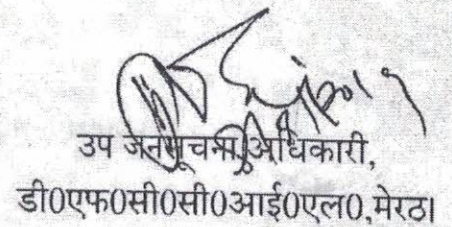 उप जनसूचना अधिकारी,
डी0एफ0सी0सी0आई0एल0,मेरठ।